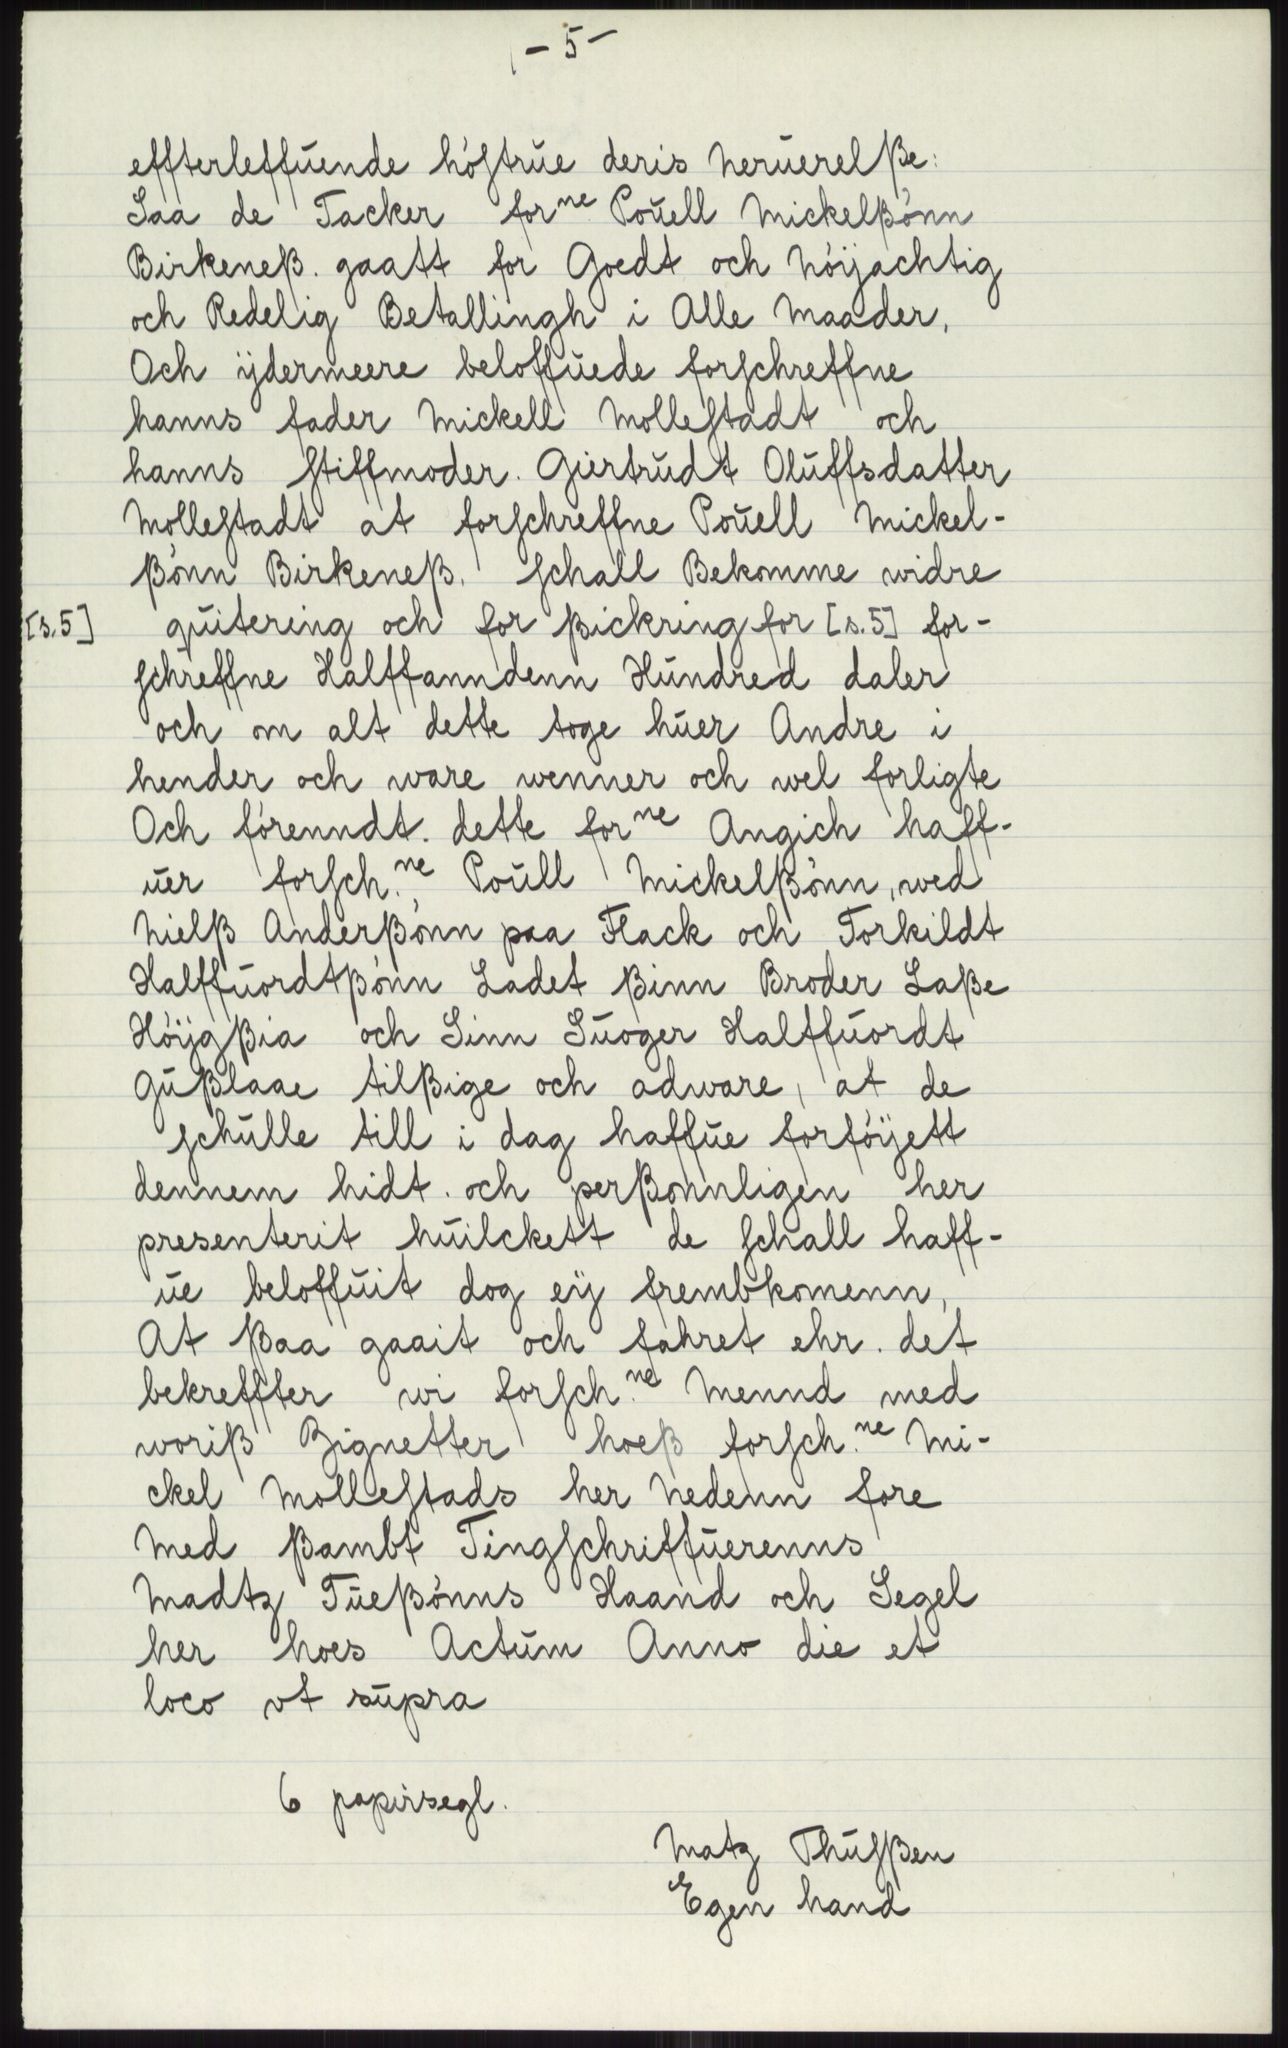 - 5 -
effterleffuende hóstrūe deris neruerelße:
Saa de Tacker forne Poūell Mickelßónn
Birkeneß. gaatt for Goedt och nóijachtig
och Redelig Betallingh i Alle Maader,
Och ÿdermeere beloffūede forschreffne
hanns fader Mickell Mollestadt och
hanns stiffmoder. Giertrūdt Olūffsdatter
Mollestadt at forschreffne Poūell Mickel-
ßónn Birkeneß. schall Bekomme widre
[s.5] qūitering och for ßickring for [s.5] for-
schreffne Halffanndenn Hūndred daler
och om alt dette toge hūer Andre i
hender och ware wenner och wel forligte
Och fórenndt. dette forne Angich haff-
ūer forsch.ne Poūll Mickelßónn, wed
Nielß Anderßónn paa Flack och Torkildt
Halffūordtßónn Ladet ßinn Broder Laße
Hóÿgßia och Sinn Sūoger Halffūordt
Gūßlaae tilßige och adware, at de
schūlle till i dag haffūe forfóÿett
dennem hidt. och perßonnligen her
presenterit hūilckett de schall haff-
ūe beloffūit dog eÿ frembkomenn,
At ßaa gaait och fahret ehr. det
bekreffter wi forsch.ne Mennd med
woriß Zignetter hoeß forsch.ne Mi-
ckel Mollestads her Nedenn fore
Med ßambt Tingschriffūerenns
Madtz Tūeßónns Haand och Segel
her hoes Actūm Anno die et
loco vt sūpra
6 papirsegl.
Matz Thūsßen
Egen hand